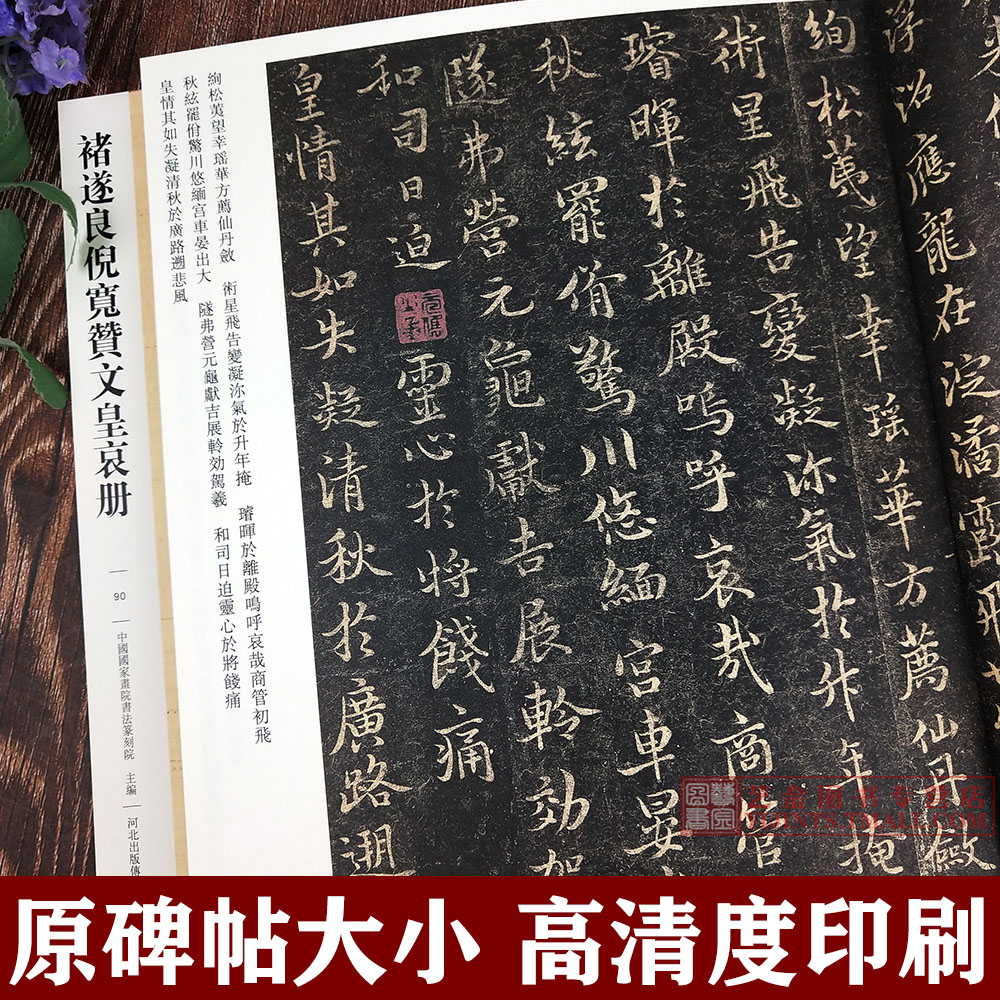 應龍在
絢松荑望幸瑶華方薦仙丹斂
術星飛告變凝沵氣於升年掩
璿暉於離殿嗚呼哀哉商管
秋絃罷佾驚川悠緬宫車晏
隧弗營元龜獻吉展軨効駕
和司日迫靈心於將餞痛
皇情其如失凝清秋於廣路遡
絢松荑望幸瑶華方薦仙丹斂 術星飛告變凝沵氣於升年掩 璿暉於離殿嗚呼哀哉商管初飛
秋絃罷佾驚川悠緬宫車晏出大 隧弗營元龜獻吉展軨効駕羲 和司日迫靈心於將餞痛
皇情其如失凝清秋於廣路遡悲風
褚遂良倪寬贊文皇哀册
90
中國國家畫院書法篆刻院 主编
河北出版傳
原碑帖大小 高清度印刷